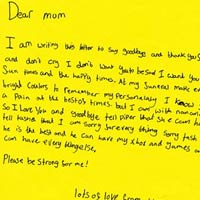 Dear mom
I am writing this letter to say goodbye and thank you
and don't cry I don't want you to be sad I want you
Sun times and the happy times. At my funeral make
bright colours to remember my personality I know I
a Pain at the best of times but I am with nanni
So I love You and goodbye tell piper that she can
tell that I am Sorry for every thing Sorry
he is the best and he can have my xbox and games
can have every thing else,
Please be Strong for me!
lots of love from